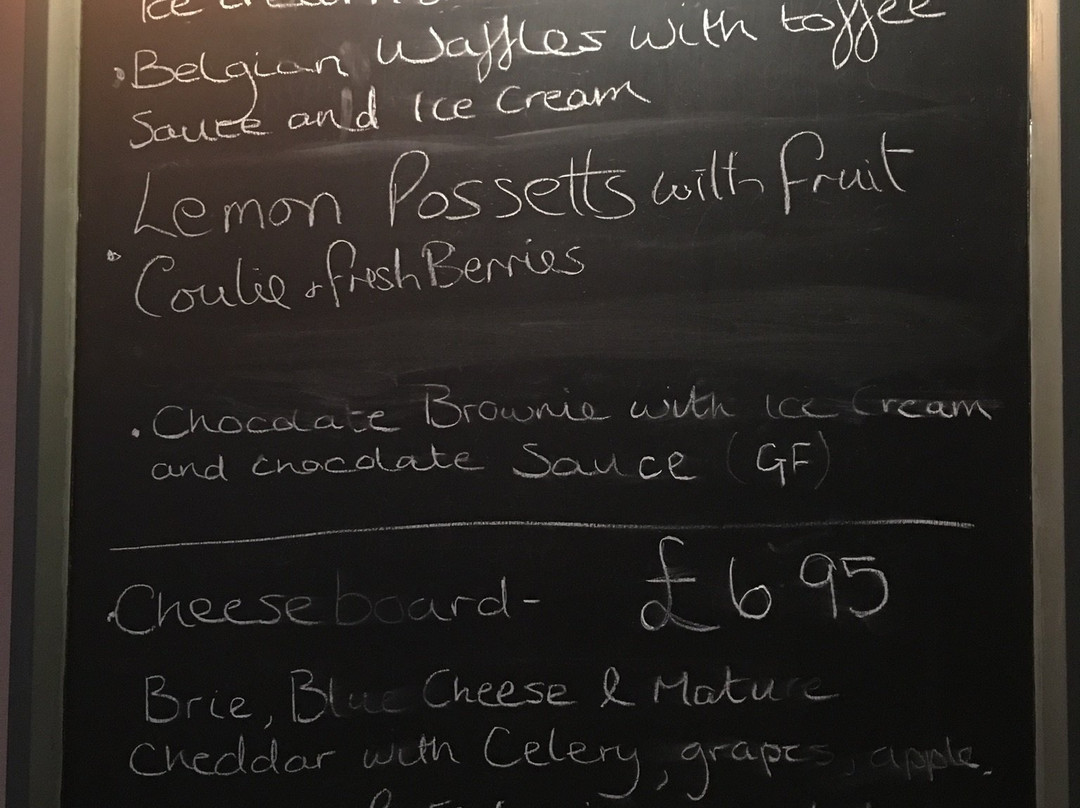 Ice cream
• Belgian Waffles with toffee
Sauce and Ice Cream
Lemon Possetts with fruit
• Coulie & fresh Berries
• Chocolate Brownie with Ice Cream
and chocolate Sauce (GF)
• Cheeseboard - £6.95
Brie, Blue Cheese & Mature
Cheddar with Celery, grapes, apple,